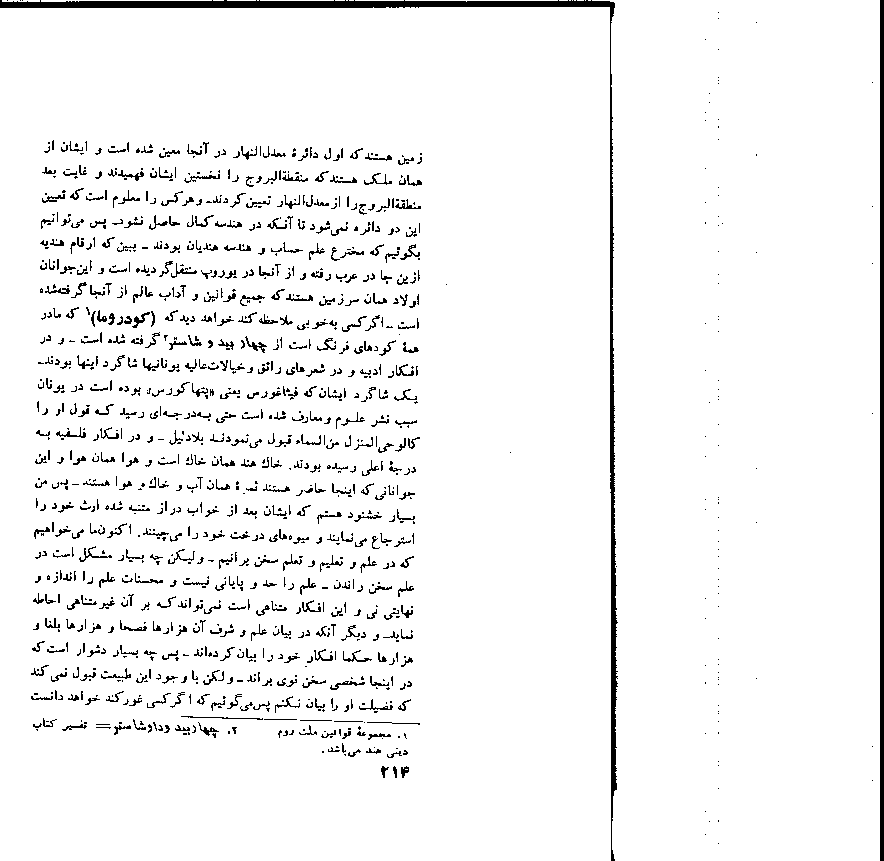 زمین هستند که اول دائرهٔ معدل‌النهار در آنجا معین شده است و ایشان از
همان ملک هستند که منقطةالبروج را نخستین ایشان فهمیدند و غایت بعد
منطقةالبروج را از معدل‌النهار تعیین کردند ـ و هرکس را معلوم است که تعیین
این دو دائره نمی‌شود تا آنکه در هندسه کمال حاصل نشود ـ پس می‌توانیم
بگوئیم که مخترع علم حساب و هندسه هندیان بودند ـ ببین که ارقام هندیه
از ین جا در عرب رفته و از آنجا در یوروپ منتقل گردیده است و این جوانان
اولاد همان سرزمین هستند که جمیع قوانین و آداب عالم از آنجا گرفته شده
است ـ اگر کسی به خوبی ملاحظه کند خواهد دید که (کودروما)۱ که مادر
همهٔ کودهای فرنگ است از چهار بید و شاستر۲ گرفته شده است ـ و در
افکار ادبیه و در شعرهای رائق و خیالات عالیه یونانیها شاگرد اینها بودند ـ
یک شاگرد ایشان که فیثاغورس یعنی «پتهاکورس» بوده است در یونان
سبب نشر علوم و معارف شده است حتی به درجه‌ای رسید که قول او را
کالوحی‌المنزل من‌السماء قبول می‌نمودند بلادلیل ـ و در افکار فلسفیه به
درجهٔ اعلی رسیده بودند. خاك هند همان خاك است و هوا همان هوا و این
جوانانی که اینجا حاضر هستند ثمرهٔ همان آب و خاك و هوا هستند ـ پس من
بسیار خشنود هستم که ایشان بعد از خواب دراز متنبه شده ارث خود را
استرجاع می‌نمایند و میوه‌های درخت خود را می‌چینند. اکنون ما می‌خواهیم
که در علم و تعلیم و تعلم سخن برانیم ـ ولیکن چه بسیار مشکل است در
علم سخن راندن ـ علم را حد و پایانی نیست و محسنات علم را اندازه و
نهایتی نی و این افکار متناهی است نمی‌تواند که بر آن غیرمتناهی احاطه
نماید ـ و دیگر آنکه در بیان علم و شرف آن هزارها فصحا و هزارها بلغا و
هزارها حکما افکار خود را بیان کرده‌اند ـ پس چه بسیار دشوار است که
در اینجا شخصی سخن نوی براند ـ ولکن با وجود این طبیعت قبول نمی‌کند
که فضیلت او را بیان نکنم پس می‌گوئیم که اگر کسی غور کند خواهد دانست
۱. مجموعهٔ قوانین ملت روم ۲. چهاربید وداوشاستر = تفسیر کتاب
دینی هند می‌باشد.
۲۱۴